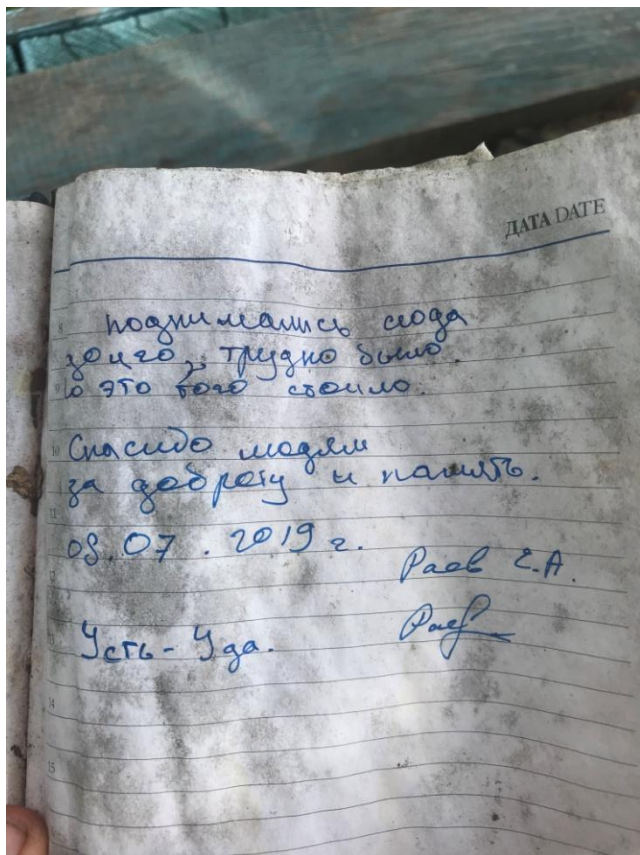 ДАТА DATE
8 поднимались сюда
долго, трудно было.
9 о это того стоило.
10 Спасибо людям
за доброту и память.
11
09.07.2019 г.
Раев Е.А.
13 Усть-Уда.
14
15